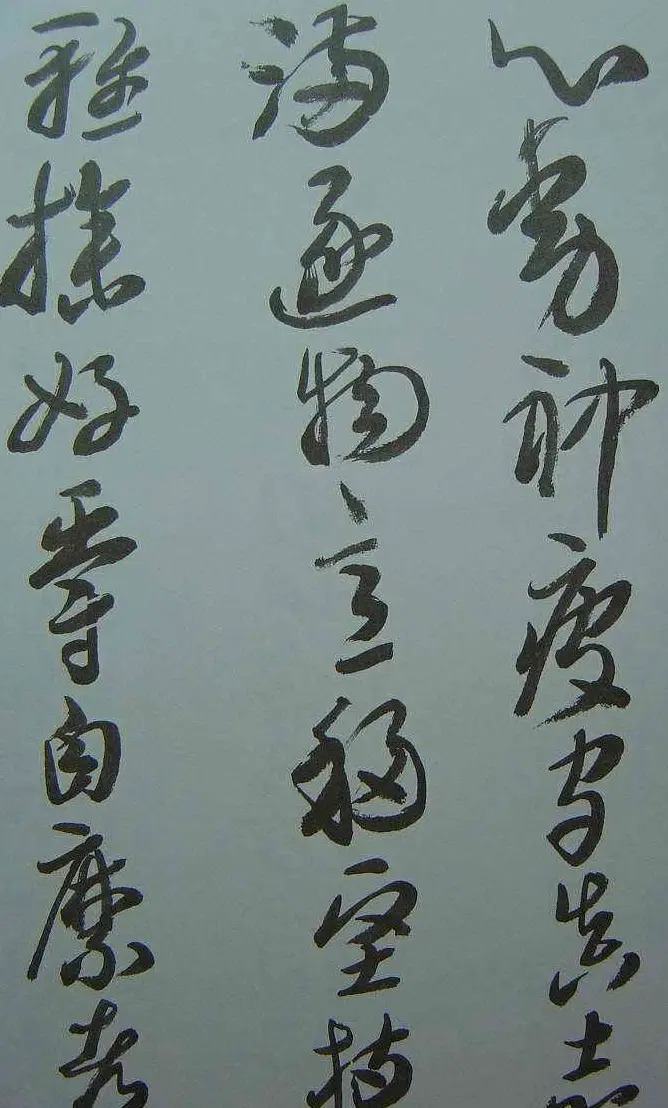 心動神疲守真志
滿逐物意移堅持
雅操好爵自縻都